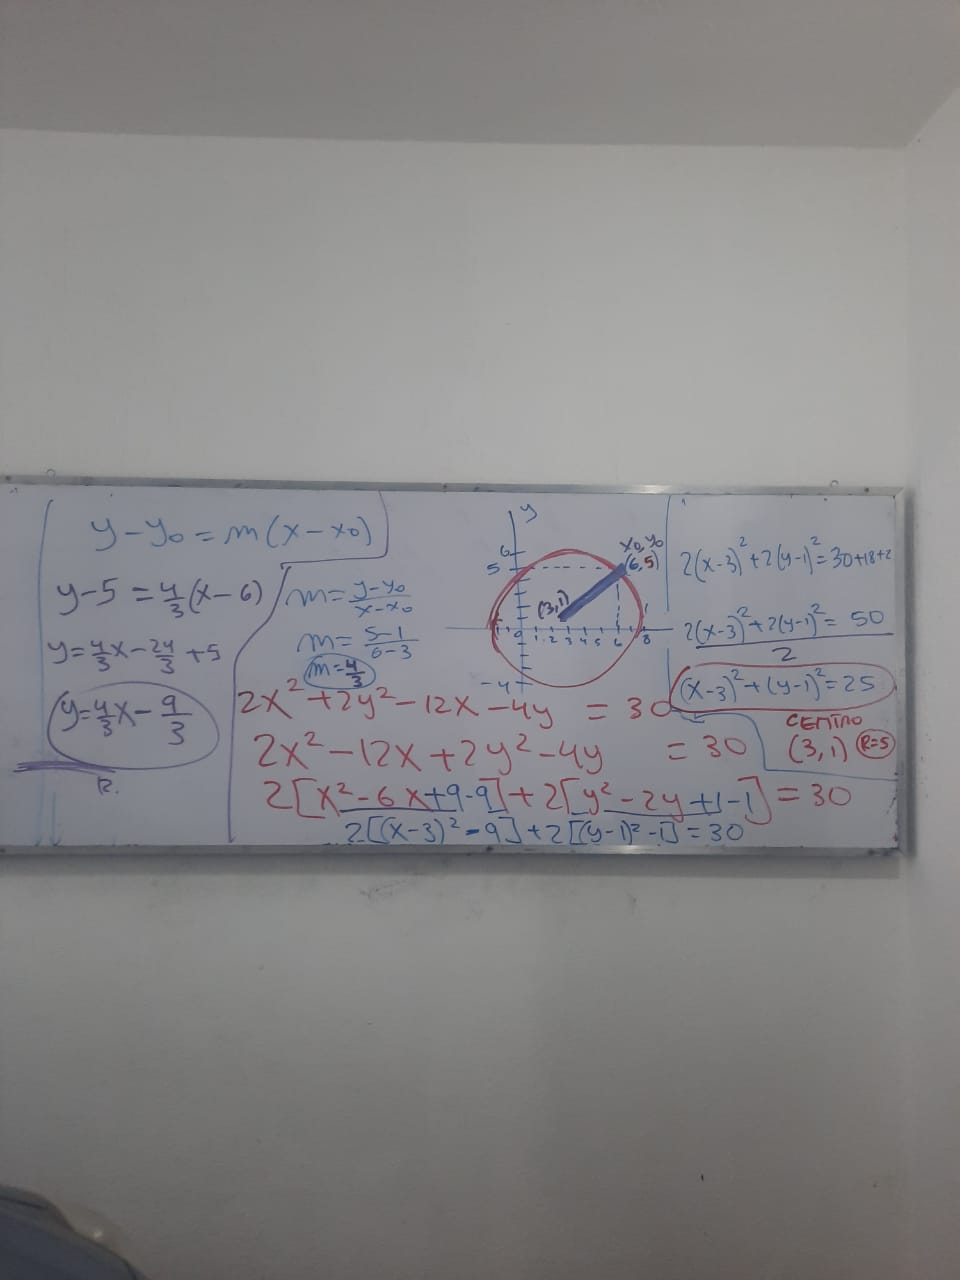 y-y₀=m(x-x₀)
y-5=4/3(x-6)
y=4/3x-24/3+5
y=4/3x-9/3
R.
m=y-y₀/x-x₀
m=5-1/6-3
m=4/3
y
6
5
x₀,y₀
(6,5)
(3,1)
0 1 2 3 4 5 6 8
-4
2x²+2y²-12x-4y = 30
2x²-12x+2y²-4y = 30
2[x²-6x+9-9]+2[y²-2y+1-1]=30
2[(x-3)²-9]+2[(y-1)²-1]=30
2(x-3)²+2(y-1)²=30+18+2
2(x-3)²+2(y-1)²=50
2
(x-3)²+(y-1)²=25
CENTRO
(3,1) R=5